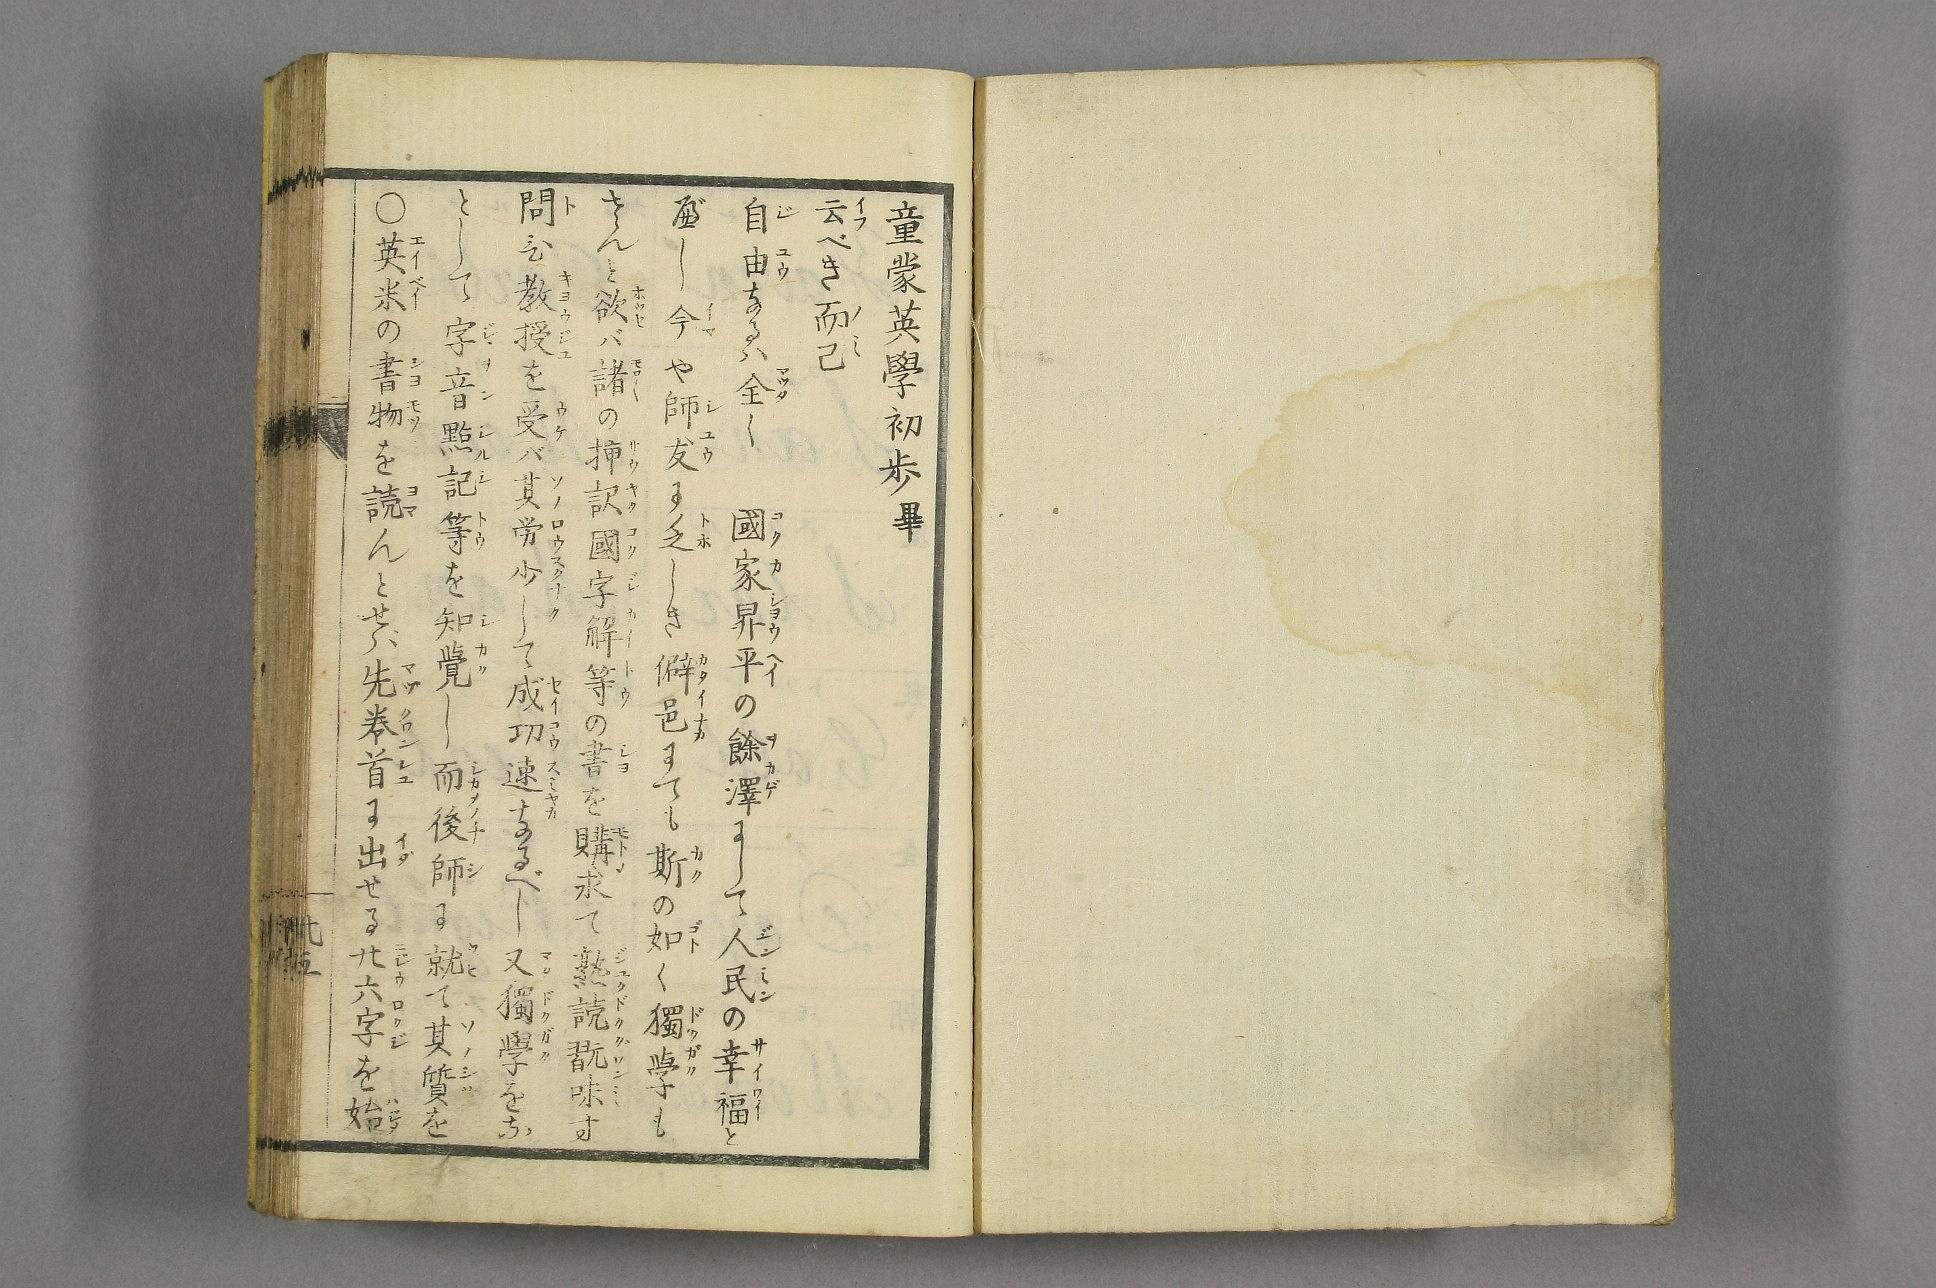 ○英米の書物を読んとせバ先巻首に出せる廿六字を始
として字音點記等を知覺し而後師に就て其質を
問ひ教授を受バ其労少して成功速なるべし又獨學をな
さんと欲バ諸の挿訳國字解等の書を購求て熟読翫味す
べし今や師友に乏しき僻邑にても斯の如く獨學も
自由なるハ全く 國家昇平の餘澤にして人民の幸福と
云べき而已
童蒙英學初歩畢